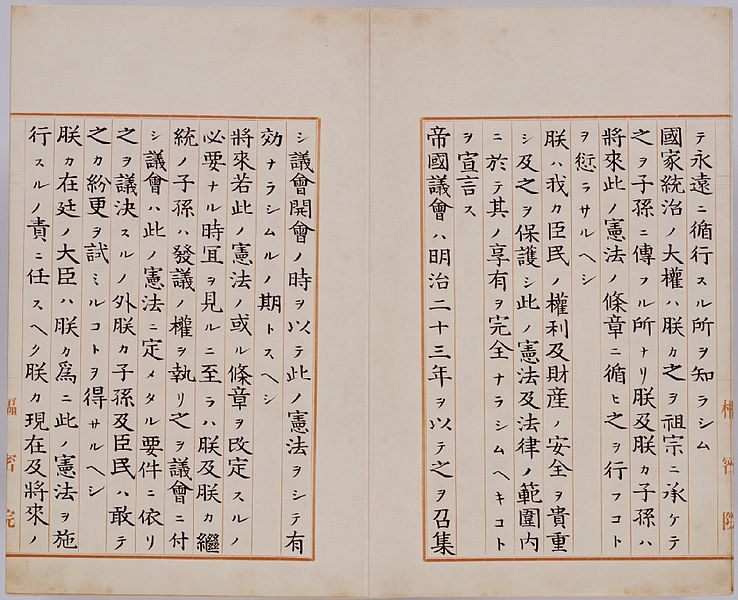 テ永遠ニ循行スル所ヲ知ラシム
國家統治ノ大權ハ朕カ之ヲ祖宗ニ承ケテ
之ヲ子孫ニ傳フル所ナリ朕及朕カ子孫ハ
將來此ノ憲法ノ條章ニ循ヒ之ヲ行フコト
ヲ愆ラサルヘシ
朕ハ我カ臣民ノ權利及財産ノ安全ヲ貴重
シ及之ヲ保護シ此ノ憲法及法律ノ範圍内
ニ於テ其ノ享有ヲ完全ナラシムヘキコト
ヲ宣言ス
帝國議會ハ明治二十三年ヲ以テ之ヲ召集
シ議會開會ノ時ヲ以テ此ノ憲法ヲシテ有
効ナラシムルノ期トスヘシ
將來若此ノ憲法ノ或ル條章ヲ改定スルノ
必要ナル時冝ヲ見ルニ至ラハ朕及朕カ繼
統ノ子孫ハ發議ノ權ヲ執リ之ヲ議會ニ付
シ議會ハ此ノ憲法ニ定メタル要件ニ依リ
之ヲ議決スルノ外朕カ子孫及臣民ハ敢テ
之カ紛更ヲ試ミルコトヲ得サルヘシ
朕カ在廷ノ大臣ハ朕カ爲ニ此ノ憲法ヲ施
行スルノ責ニ任スヘク朕カ現在及將來ノ
樞密院